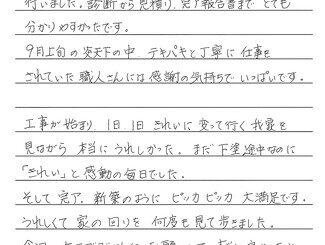 行いました。診断から見積り、完了報告書まで とても
分かりやすかたです。
9月上旬の炎天下の中 テキパキと丁寧に 仕事を
されていた職人さんには感謝の気持ちで いっぱいです。
工事が始まり、1日、1日 きれいに 変って行く 我家を
見ながら 本当に うれしかった。まだ下塗途中なのに
「きれい」と感動の毎日でした。
そして 完了、新築のように ピッカ ピッカ 大満足です。
うれしくて 家の回りを 何度も見て歩きました。